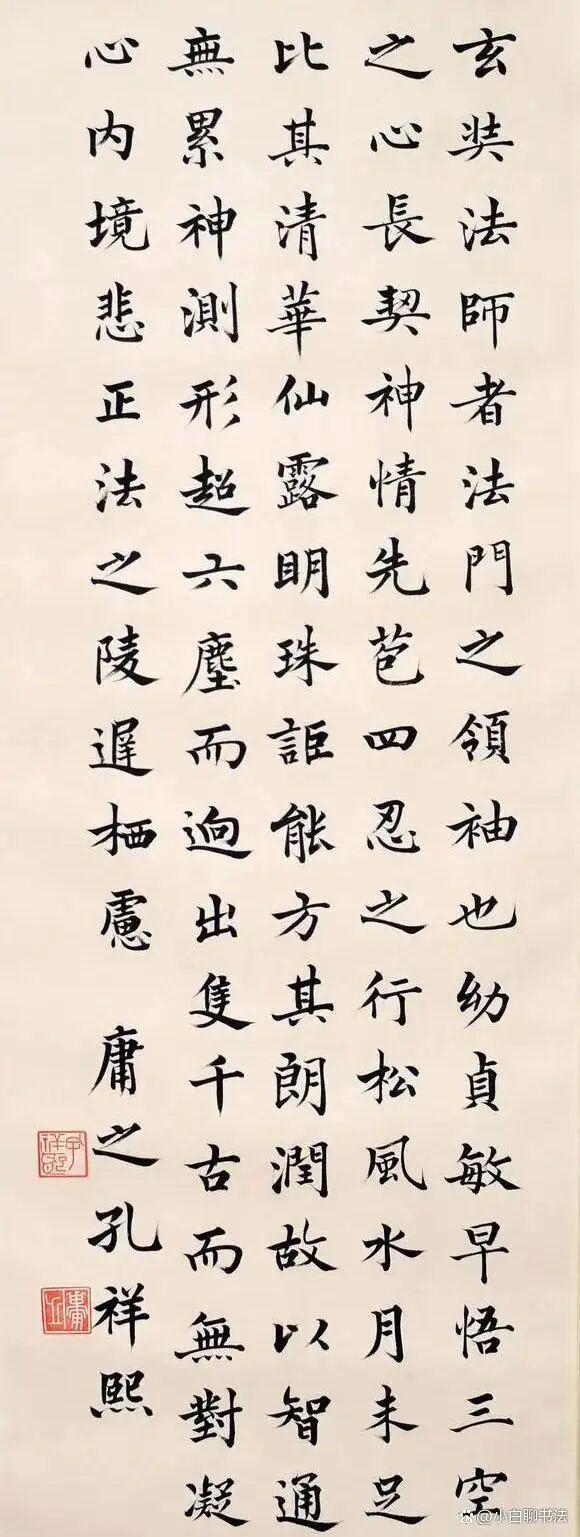 玄奘法師者法門之領袖也幼貞敏早悟三空
之心長契神情先苞四忍之行松風水月未足
比其清華仙露明珠詎能方其朗潤故以智通
無累神測形超六塵而迥出隻千古而無對凝
心內境悲正法之陵遲栖慮
庸之孔祥熙
@小白聊书法